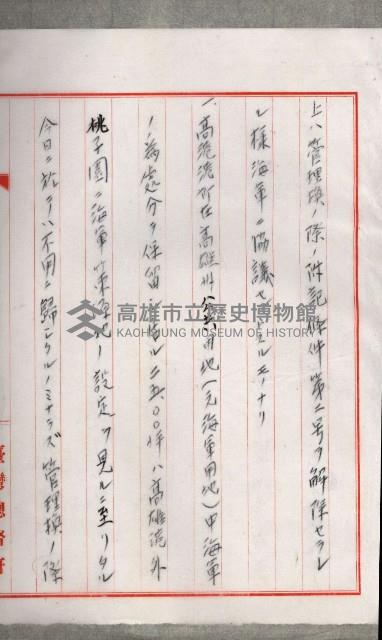 上ハ管理換ノ際ノ附記條件第二号ヲ解除セラレ
レ様海軍ニ協議セ ルモノナリ
一、高雄港所在高雄州公共用地(元海軍用地)中海軍
ノ為処分ヲ保留 ル二五〇〇坪ハ高雄港外
桃子園ニ海軍 ノ設定ヲ見ルニ至リタル
今日ニ於テハ不用ニ歸シタルノミナラズ管理換ノ際
臺灣總督府
高雄市立歷史博物館
KAOHSIUNG MUSEUM OF HISTORY